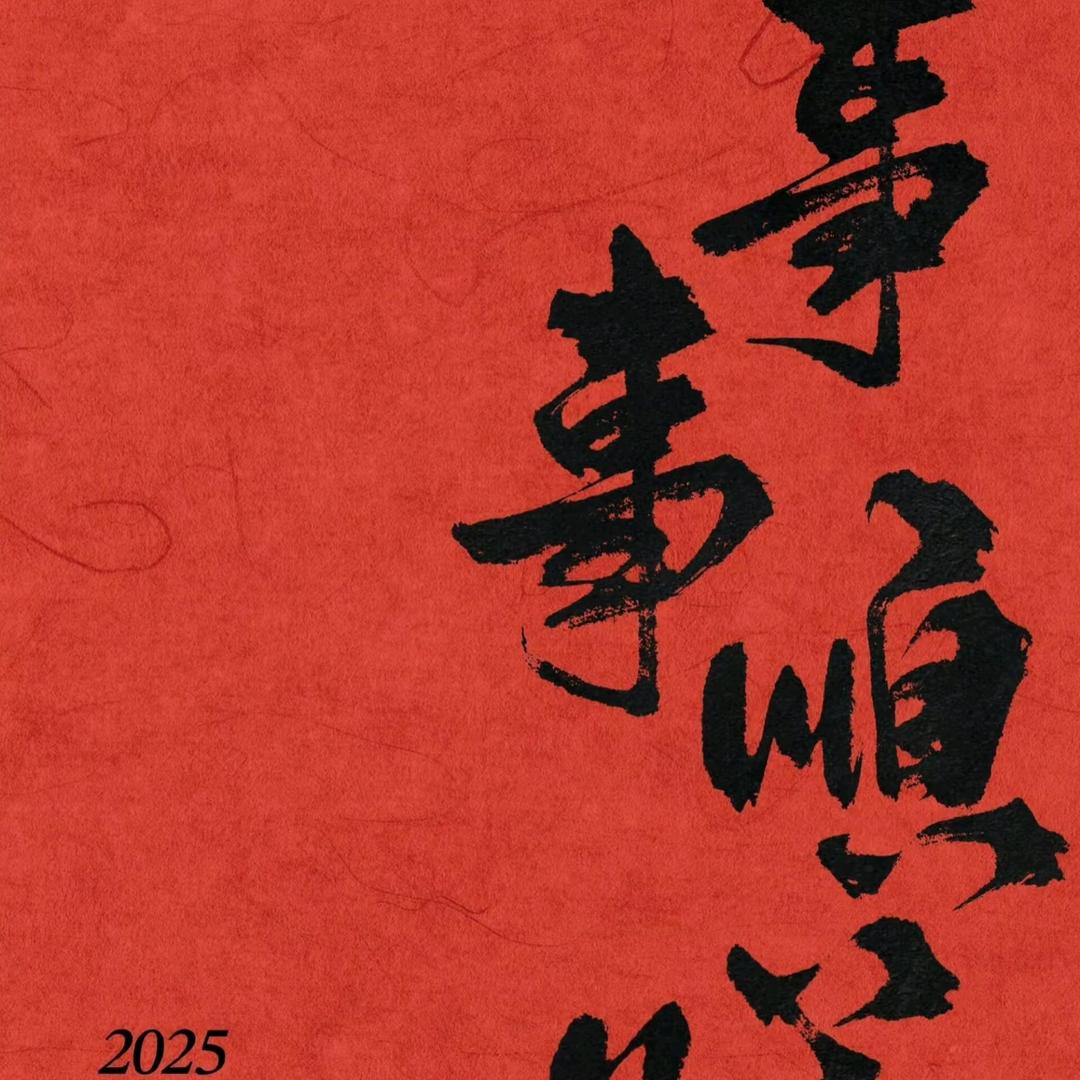 事
事
順
2025